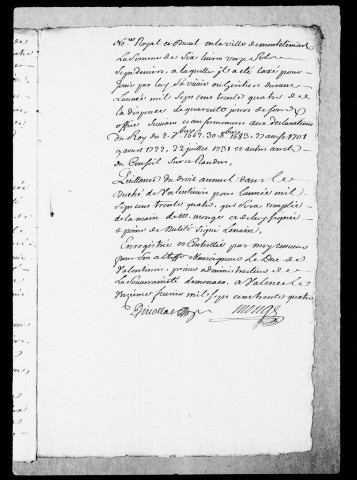 No.re Royal et Ducal en la ville de montelimart
La somme de six livres onze sols
sept deniers, a laquelle il a eté taxé pour
jouir par luy sa vie ou heritiers durant
l'année mil sept cens trente quatre de
la dispence de quarante jours de son
office suivant et conformement aux declarations
du Roy du 27 1669. 30. 8.bre 1683. 27 aoust 1701
9 aoust 1722, 22 juillet 1731 et autres arrets
du Conseil sur ce Rendus
Quittance du droit annuel dans le
duché de Valentinois pour l'année mil
sept cens trente quatre, qui sera remplie
de la main de M. monge et de luy signée
a peine de nulité signé Lenain
Enregistrée et Controllée par moy
pour son altesse Monseigneur Le Duc de
Valentinois, prince administrateur de
la souveraineté de monaco, a Valence le
unzieme fevrier mil sept cens trente quatre
monge